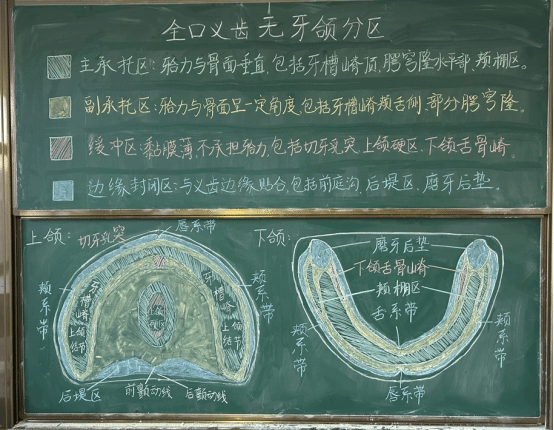 全口义齿无牙颌分区
主承托区：𬌗力与骨面垂直，包括牙槽嵴顶、腭穹隆水平部、颊棚区。
副承托区：𬌗力与骨面呈一定角度，包括牙槽嵴颊舌侧、部分腭穹隆。
缓冲区：黏膜薄，不承担𬌗力，包括切牙乳突、上颌硬区、下颌舌骨嵴。
边缘封闭区：与义齿边缘贴合，包括前庭沟、后堤区、磨牙后垫。
上颌：
切牙乳突
唇系带
颊系带
牙槽嵴
上颌结节
上颌硬区
牙槽嵴
上颌结节
颊系带
后堤区
前颤动线
后颤动线
下颌：
磨牙后垫
下颌舌骨嵴
颊棚区
舌系带
颊系带
颊系带
唇系带